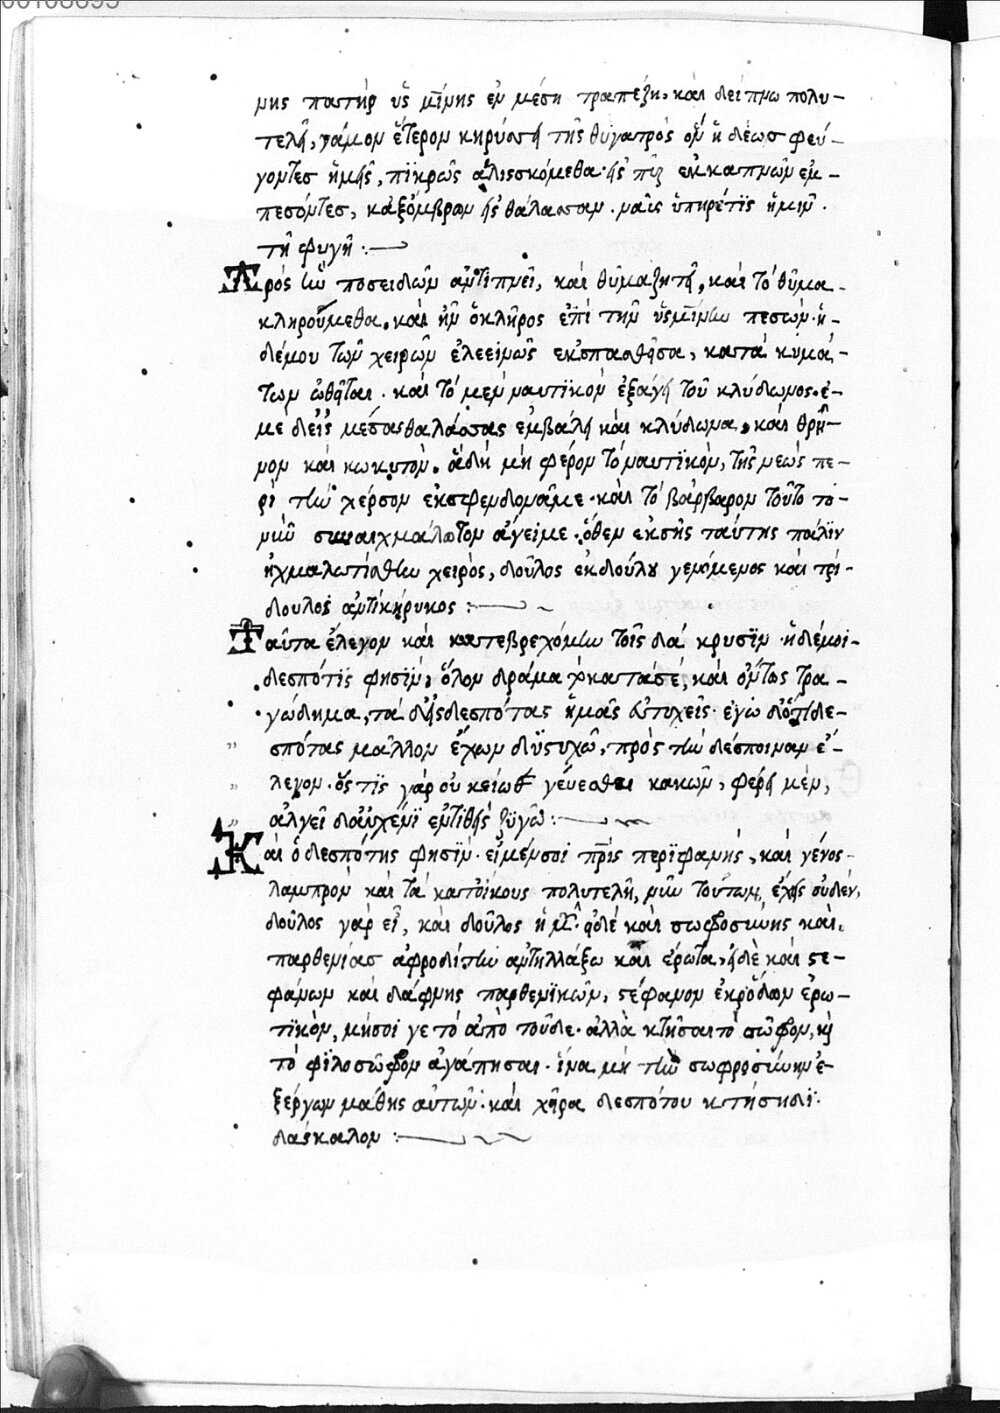 μης πατὴρ ὑσμίνης ἐν μέση τραπέζη, καὶ δείπνω πολυ-
τελῆ, γάμον ἕτερον κηρύσσει τῆς θυγατρὸς ὃν ἡδέωσ φεύ-
γοντεσ ἡμεῖς, πικρῶς ἁλισκόμεθα· εἰς πῦρ ἐκ καπνῶν ἐμ-
πεσόντεσ, κἀξ ὄμβρων εἰς θάλασσαν. ναῦς ὑπηρέτις ἡμῖν.
τῆ φυγῆ :—
πρός τὴν ποσειδῶν ἀντιπνεῖ, καὶ θῦμα ζητεῖ, καὶ τὸ θῦμα
κληρούμεθα, καὶ ἦν ὁ κλῆρος ἐπὶ τὴν ὑσμίνην πεσών· ἡ
δέ μου τῶν χειρῶν ἐλεεινῶς ἐκσπασθεῖσα, κατὰ κυμά-
των ὠθεῖται. καὶ τὸ μὲν ναυτικὸν ἐξάγει τοῦ κλύδωνος· ἐ-
μὲ δ' εἰς μέσας θαλάσσας ἐμβάλη καὶ κλύδωνα, καὶ θρῆ-
νον καὶ κωκυτὸν. ἃ δὴ μὴ φέρον τὸ ναυτικὸν, τῆς νεὼς πε-
ρὶ τὴν χέρσον ἐκσφενδονᾶ με· καὶ τὸ βάρβαρον τοῦτο το-
νῦν συναιχμάλωτον ἄγει με· ὅθεν ἐκ σῆς ταύτης πάλιν
ἠχμαλωτίσθην χειρὸς, δοῦλος ἐκ δούλου γενόμενος καὶ τρί-
δουλος ἀντὶ κήρυκος :—
Ταῦτα ἔλεγον καὶ κατεβρεχόμην τοῖς δάκρυσιν· ἡ δέ μοι
δεσπότις φησὶν, ὅλον δρᾶμα τὰ κατά σέ, καὶ ὄντως τρα-
γώδημα, τὰ δ' εἰς δεσπότας ἡμᾶς εὐτυχεῖς· ἐγὼ δ' ὅτι δε-
σπότας μᾶλλον ἔχων δυστυχῶ, πρὸς τὴν δέσποιναν ἔ-
λεγον· ὅστις γὰρ οὐκ εἴωθε γεύεσθαι κακῶν, φέρει μὲν,
ἀλγεῖ δ' αὐχέν' ἐντιθεὶς ζυγῶ :—
Καὶ ὁ δεσπότης φησὶν· εἰ μέν σοι πρὶς περιφανὴς, καὶ γένος
λαμπρὸν καὶ τὰ κατ' οἴκους πολυτελῆ, νῦν τούτων, ἔχεις οὐδὲν,
δοῦλος γὰρ εἶ, καὶ δοῦλος ἡμέτερος· εἰ δὲ καὶ σωφροσύνης καὶ
παρθενίασ ἀφροδίτην ἀντηλλάξω καὶ ἔρωτα, εἰ δὲ καὶ στε-
φάνων καὶ δάφνης παρθενικῶν, στέφανον ἐκ ρόδων ἐρω-
τικὸν, μή σοι γε τὸ ἀπὸ τοῦδε· ἀλλὰ κτῆσαι τὸ σῶφρον, καὶ
τὸ φιλοσῶφρον ἀγάπησαι· ἵνα μὴ τὴν σωφροσύνην ἐ-
ξ ἔργων μάθης αὐτῶν· καὶ χεῖρα δεσπότου κτήση δι-
δάσκαλον :—